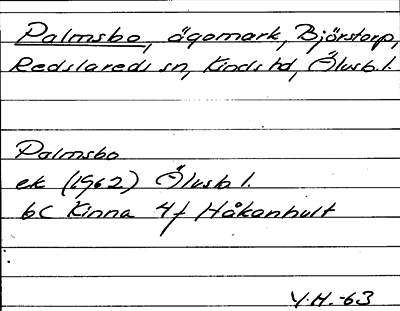 Palmsbo, ägomark, Björstorp,
Redslareds sn, Kinds hd, Älvsb.l.
Palmsbo
ek (1962) Älvsb l.
6C Kinna 4f Håkanhult
Y.H.-63